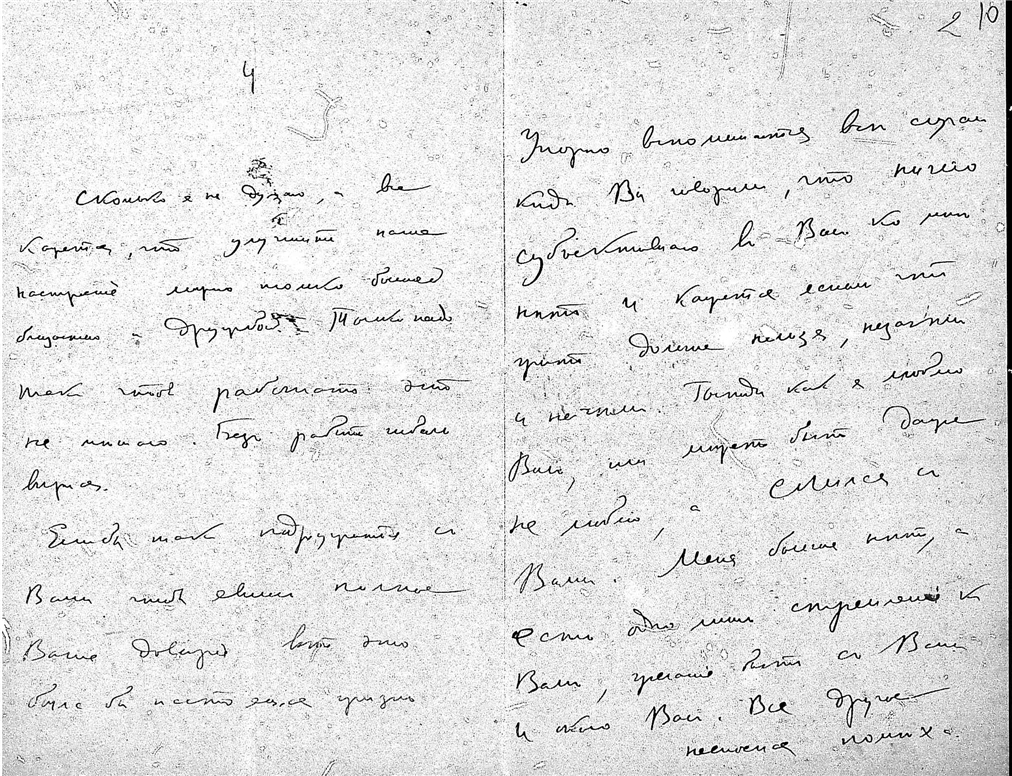 4
Сколько я не думаю, а все
кажется, что улучшить наше
настроение можно только большей
близостью и дружбой. Только надо
так чтоб работать это
не мешало. Без работы
вырос.
Если бы так подружиться съ
Вами чтоб явилось полное
Ваше доверіе вотъ это
была бы настоящая жизнь
2 10
Упорно вспоминается все случаи
когда Вы говорили, что ничего
субъективнаго въ Васъ ко мнѣ
нѣтъ и кажется ясным что
жить дольше нельзя, незачѣмъ
и не чѣмъ. Господи как я люблю
Васъ, или можетъ быть даже
не люблю, а слился съ
Вами. Меня больше нѣтъ, а
есть одно лишь стремление къ
Вамъ, желаніе быть съ Вами
и около Васъ. Все другое
несносная помѣха.